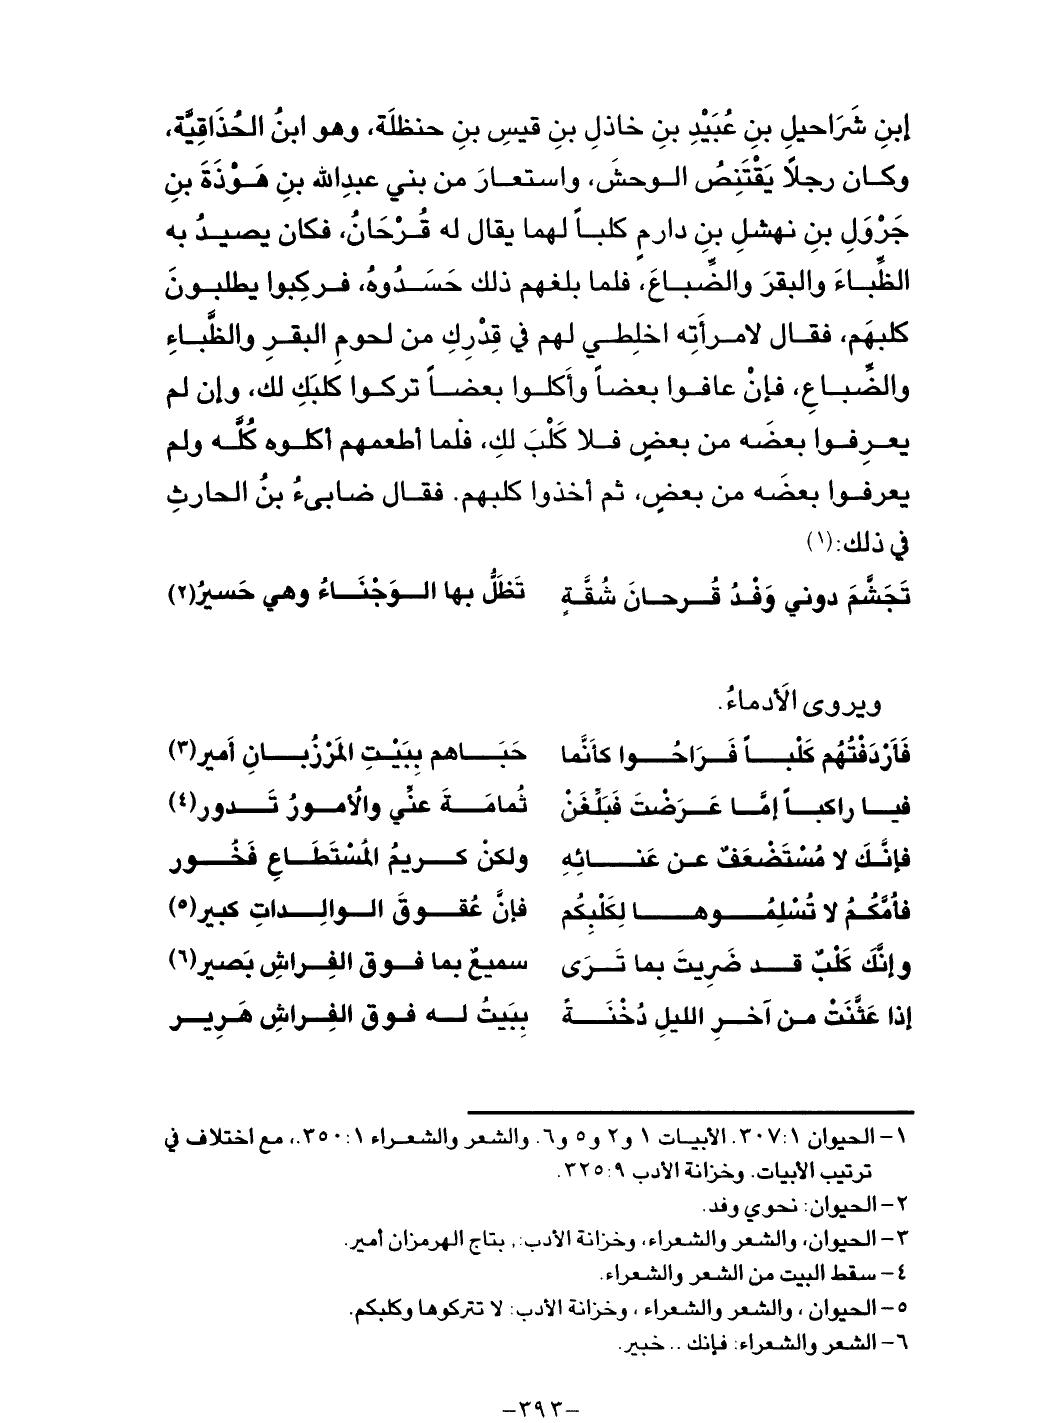 إبنِ شَرَاحيلِ بنِ عُبَيْدِ بنِ خاذلِ بنِ قيسِ بنِ حنظلَة، وهو ابنُ الحُذَاقِيَّة،
وكان رجلاً يَقْتَنِصُ الوحشَ، واستعارَ من بني عبدِالله بنِ هَوْذَةَ بنِ
جَرْوَلِ بنِ نهشلِ بنِ دارمٍ كلباً لهما يقال له قُرْحَانُ، فكان يصيدُ به
الظِّبَاءَ والبقرَ والضِّباعَ، فلما بلغهم ذلك حَسَدُوهُ، فركِبوا يطلبونَ
كلبهَم، فقال لامرأتِه اخلِطي لهم في قِدْرِكِ من لحومِ البقرِ والظِّباءِ
والضِّباعِ، فإنْ عافوا بعضاً وأكلوا بعضاً تركوا كلبَكِ لك، وإن لم
يعرِفوا بعضَه من بعضٍ فلا كَلْبَ لكِ، فلما أطعمهم أكلوه كُلَّه ولم
يعرفوا بعضَه من بعضٍ، ثم أخذوا كلبهم. فقال ضابىءُ بنُ الحارثِ
في ذلك:(١)
تَجَشَّمَ دوني وَفْدُ قُرحانَ شُقَّةٍ تَظَلُّ بها الوَجْنَاءُ وهي حَسيرُ(٢)
ويروى الَأدماءُ.
فَأَرْدَفْتُهُم كَلْباً فَرَاحُوا كأنَّما حَبَاهم بِبَيْتِ المَرْزُبانِ أَمير(٣)
فيا راكباً إمَّا عَرَضْتَ فَبَلِّغَنْ ثُمامَةَ عنِّي والُأمورُ تَدور(٤)
فإنَّكَ لا مُسْتَضْعَفٌ عن عَنائِهِ ولكنْ كريمُ المُسْتَطَاعِ فَخُور
فأمَّكُمُ لا تُسْلِمُوها لِكَلْبِكُم فإنَّ عُقوقَ الوالِداتِ كبير(٥)
وإنَّكَ كَلْبٌ قد ضَرِيتَ بما تَرَى سميعٌ بما فوق الفِراشِ بَصير(٦)
إذا عَثَّنَتْ من آخرِ الليلِ دُخْنَةً يبَيتُ له فوق الفِراشِ هَرِير
١- الحيوان ٣٠٧:١. الأبيات ١ و٢ و٥ و٦. والشعر والشعراء ٣٥٠:١.، مع اختلاف في
ترتيب الأبيات. وخزانة الأدب ٣٢٥:٩.
٢- الحيوان: نحوي وفد.
٣- الحيوان، والشعر والشعراء، وخزانة الأدب:. بتاج الهرمزان أمير.
٤- سقط البيت من الشعر والشعراء.
٥- الحيوان ، والشعر والشعراء ، وخزانة الأدب: لا تتركوها وكلبكم.
٦- الشعر والشعراء: فإنك .. خبير.
-٣٩٣-